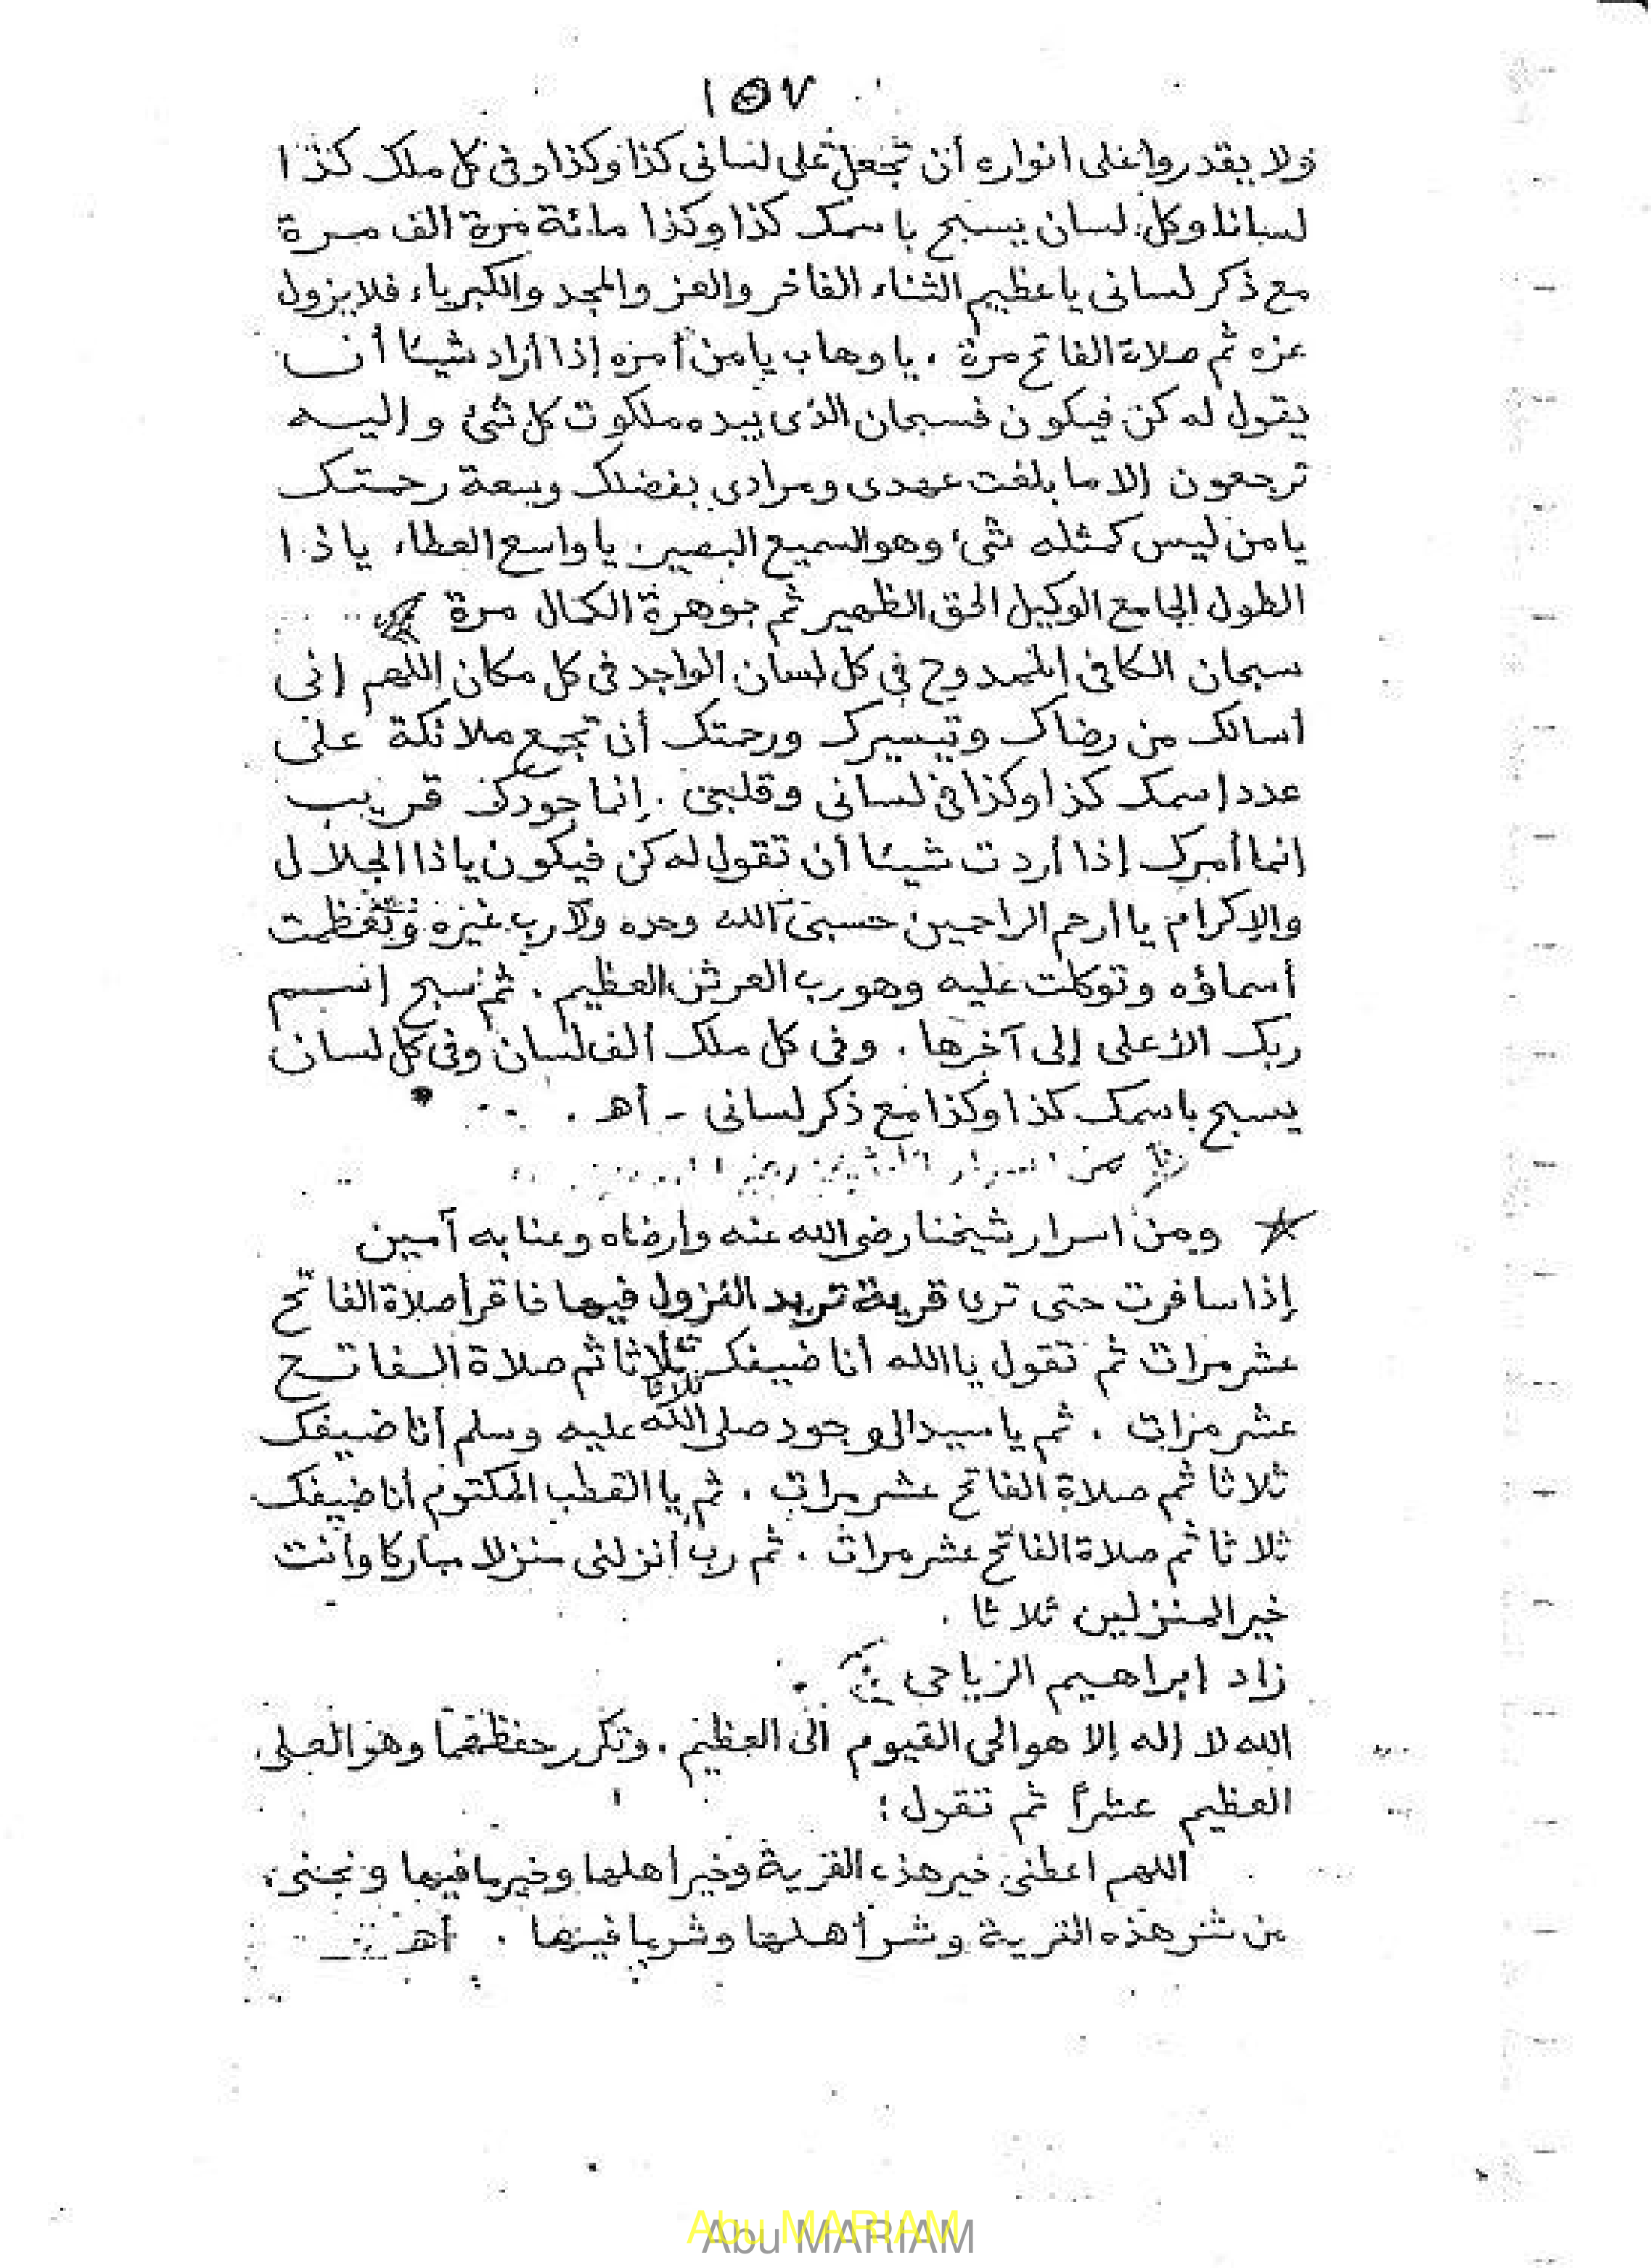 ١٥٧
ولا يقدروا على انواره أن تجعل على لسانى كذا وكذا وفى كل ملك كذا
لسانا وكل لسان يسبح باسمك كذا وكذا مائة مرة الف مرة
مع ذكر لسانى يا عظيم الثناء الفاخر والعز والمجد والكبرياء فلا يزول
عزه ثم صلاة الفاتح مرة . يا وهاب يا من أمره إذا أراد شيئا أن
يقول له كن فيكون فسبحان الذى بيده ملكوت كل شئ وإليه
ترجعون إلا ما بلغت عهدى ومرادى بفضلك وسعة رحمتك
يا من ليس كمثله شئ وهو السميع البصير. يا واسع العطاء ياذا
الطول الجامع الوكيل الحق الظهير ثم جوهرة الكمال مرة
سبحان الكافى الممدوح فى كل لسان الواجد فى كل مكان اللهم إنى
أسالك من رضاك وتيسيرك ورحمتك أن تجمع ملائكة على
عدد اسمك كذا وكذا فى لسانى وقلبى . إنما جودك قريب
إنما أمرك إذا أردت شيئا أن تقول له كن فيكون ياذا الجلال
والإكرام يا أرحم الراحمين حسبى الله وحده ولا رب غيره وتعظمت
أسماؤه وتوكلت عليه وهو رب العرش العظيم . ثم سبح إسم
ربك الأعلى إلى آخرها . وفى كل ملك ألف لسان وفى كل لسان
يسبح باسمك كذا وكذا مع ذكر لسانى - أهـ .
ومن اسرار شيخنا رضى الله عنه وارضاه وعنا به آمين
إذا سافرت حتى ترى قرية تريد النزول فيها فاقرأ صلاة الفاتح
عشر مرات ثم تقول يا الله أنا ضيفك ثلاثا ثم صلاة الفاتح
ثلاثا
عشر مرات . ثم يا سيد الوجود صلى الله عليه وسلم أنا ضيفك
ثلاثا ثم صلاة الفاتح عشر مرات . ثم يا القطب المكتوم أنا ضيفك
ثلاثا ثم صلاة الفاتح عشر مرات . ثم رب أنزلنى منزلا مباركا وأنت
خير المنزلين ثلاثا .
زاد ابراهيم الرياحى
الله لا إله إلا هو الحى القيوم الى العظيم . وتكرر حفظهما وهو العلى
العظيم عشرا ثم تقول :
اللهم اعطنى خير هذه القرية وخير اهلها وخير ما فيها ونجنى
من شر هذه القرية وشر أهلها وشر ما فيها . أهـ
Abu MARIAM